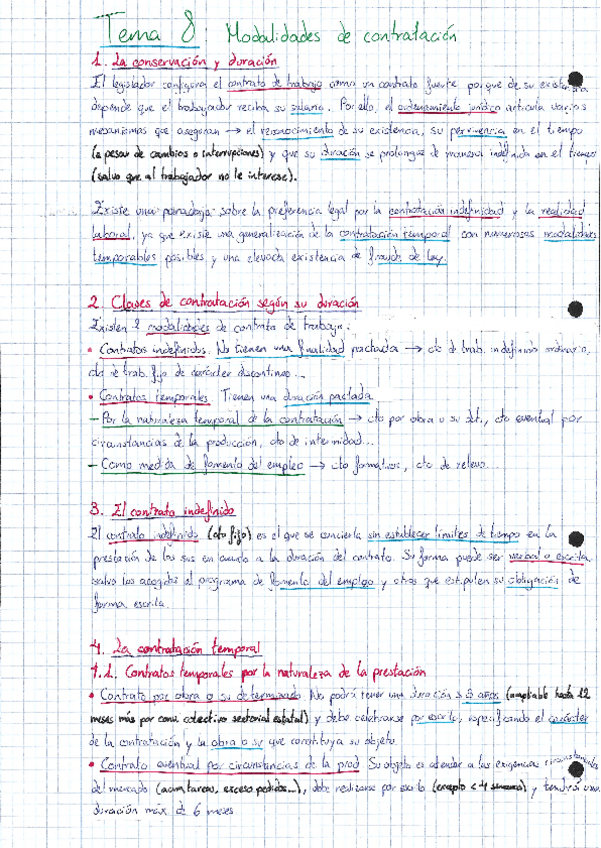 Tema 8: Modalidades de contratación
1. La conservación y duración
El legislador configura el contrato de trabajo como un contrato fuerte porque de su existencia
depende que el trabajador reciba su salario. Por ello, el ordenamiento jurídico articula varios
mecanismos que aseguran → el reconocimiento de su existencia, su pervivencia en el tiempo
(a pesar de cambios o interrupciones) y que su duración se prolongue de manera indefinida en el tiempo
(salvo que al trabajador no le interese).
Existe una paradoja sobre la preferencia legal por la contratación indefinida y la realidad
laboral, ya que existe una generalización de la contratación temporal con numerosas modalidades
temporables posibles y una elevada existencia de fraude de ley.
2. Clases de contratación según su duración
Existen 2 modalidades de contrato de trabajo:
• Contratos indefinidos. No tienen una finalidad pactada → cto d trab. indefinido ordinario,
cto de trab. fijo de carácter discontinuo...
• Contratos temporales. Tienen una duración pactada
– Por la naturaleza temporal de la contratación → cto por obra o su det., cto eventual por
circunstancias de la producción, cto de interinidad...
– Como medida de fomento del empleo → cto formativos, cto de relevo...
3. El contrato indefinido
El contrato indefinido (cto fijo) es el que se concierta sin establecer límites de tiempo en la
prestación de los svs en cuanto a la duración del contrato. Su forma puede ser verbal o escrita
salvo los acogidos al programa de fomento del empleo y otros que estipulen su obligación de
forma escrita.
4. La contratación temporal
4.1. Contratos temporales por la naturaleza de la prestación
• Contrato por obra o su determinado. No podrá tener una duración > 3 años (ampliable hasta 12
meses más por conv. colectivo sectorial estatal) y debe celebrarse por escrito, especificando el carácter
de la contratación y la obra o su que constituya su objeto.
• Contrato eventual por circunstancias de la prod. Su objeto es atender a las exigencias circunstanciales
del mercado (acum tareas, exceso pedidos...), debe realizarse por escrito (excepto < 4 semanas) y tendrá una
duración máx de 6 meses